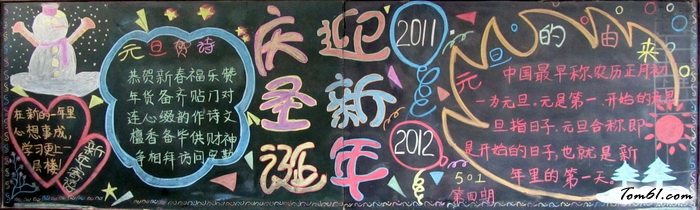 元旦贺诗
恭贺新春福乐装
年货备齐贴门对
连心缀的作诗文
檀香备毕供财神
争相拜访问
在新的一年里
心想事成,
学习更上一
层楼!
新年寄语
庆圣诞
迎新年
2011
2012
501
第四期
元旦的由来
元 中国最早称农历正月初
一为元旦,元是第一、开始的
旦指日子,元旦合称即
是开始的日子,也就是新
年里的第一天。
Tom61.com